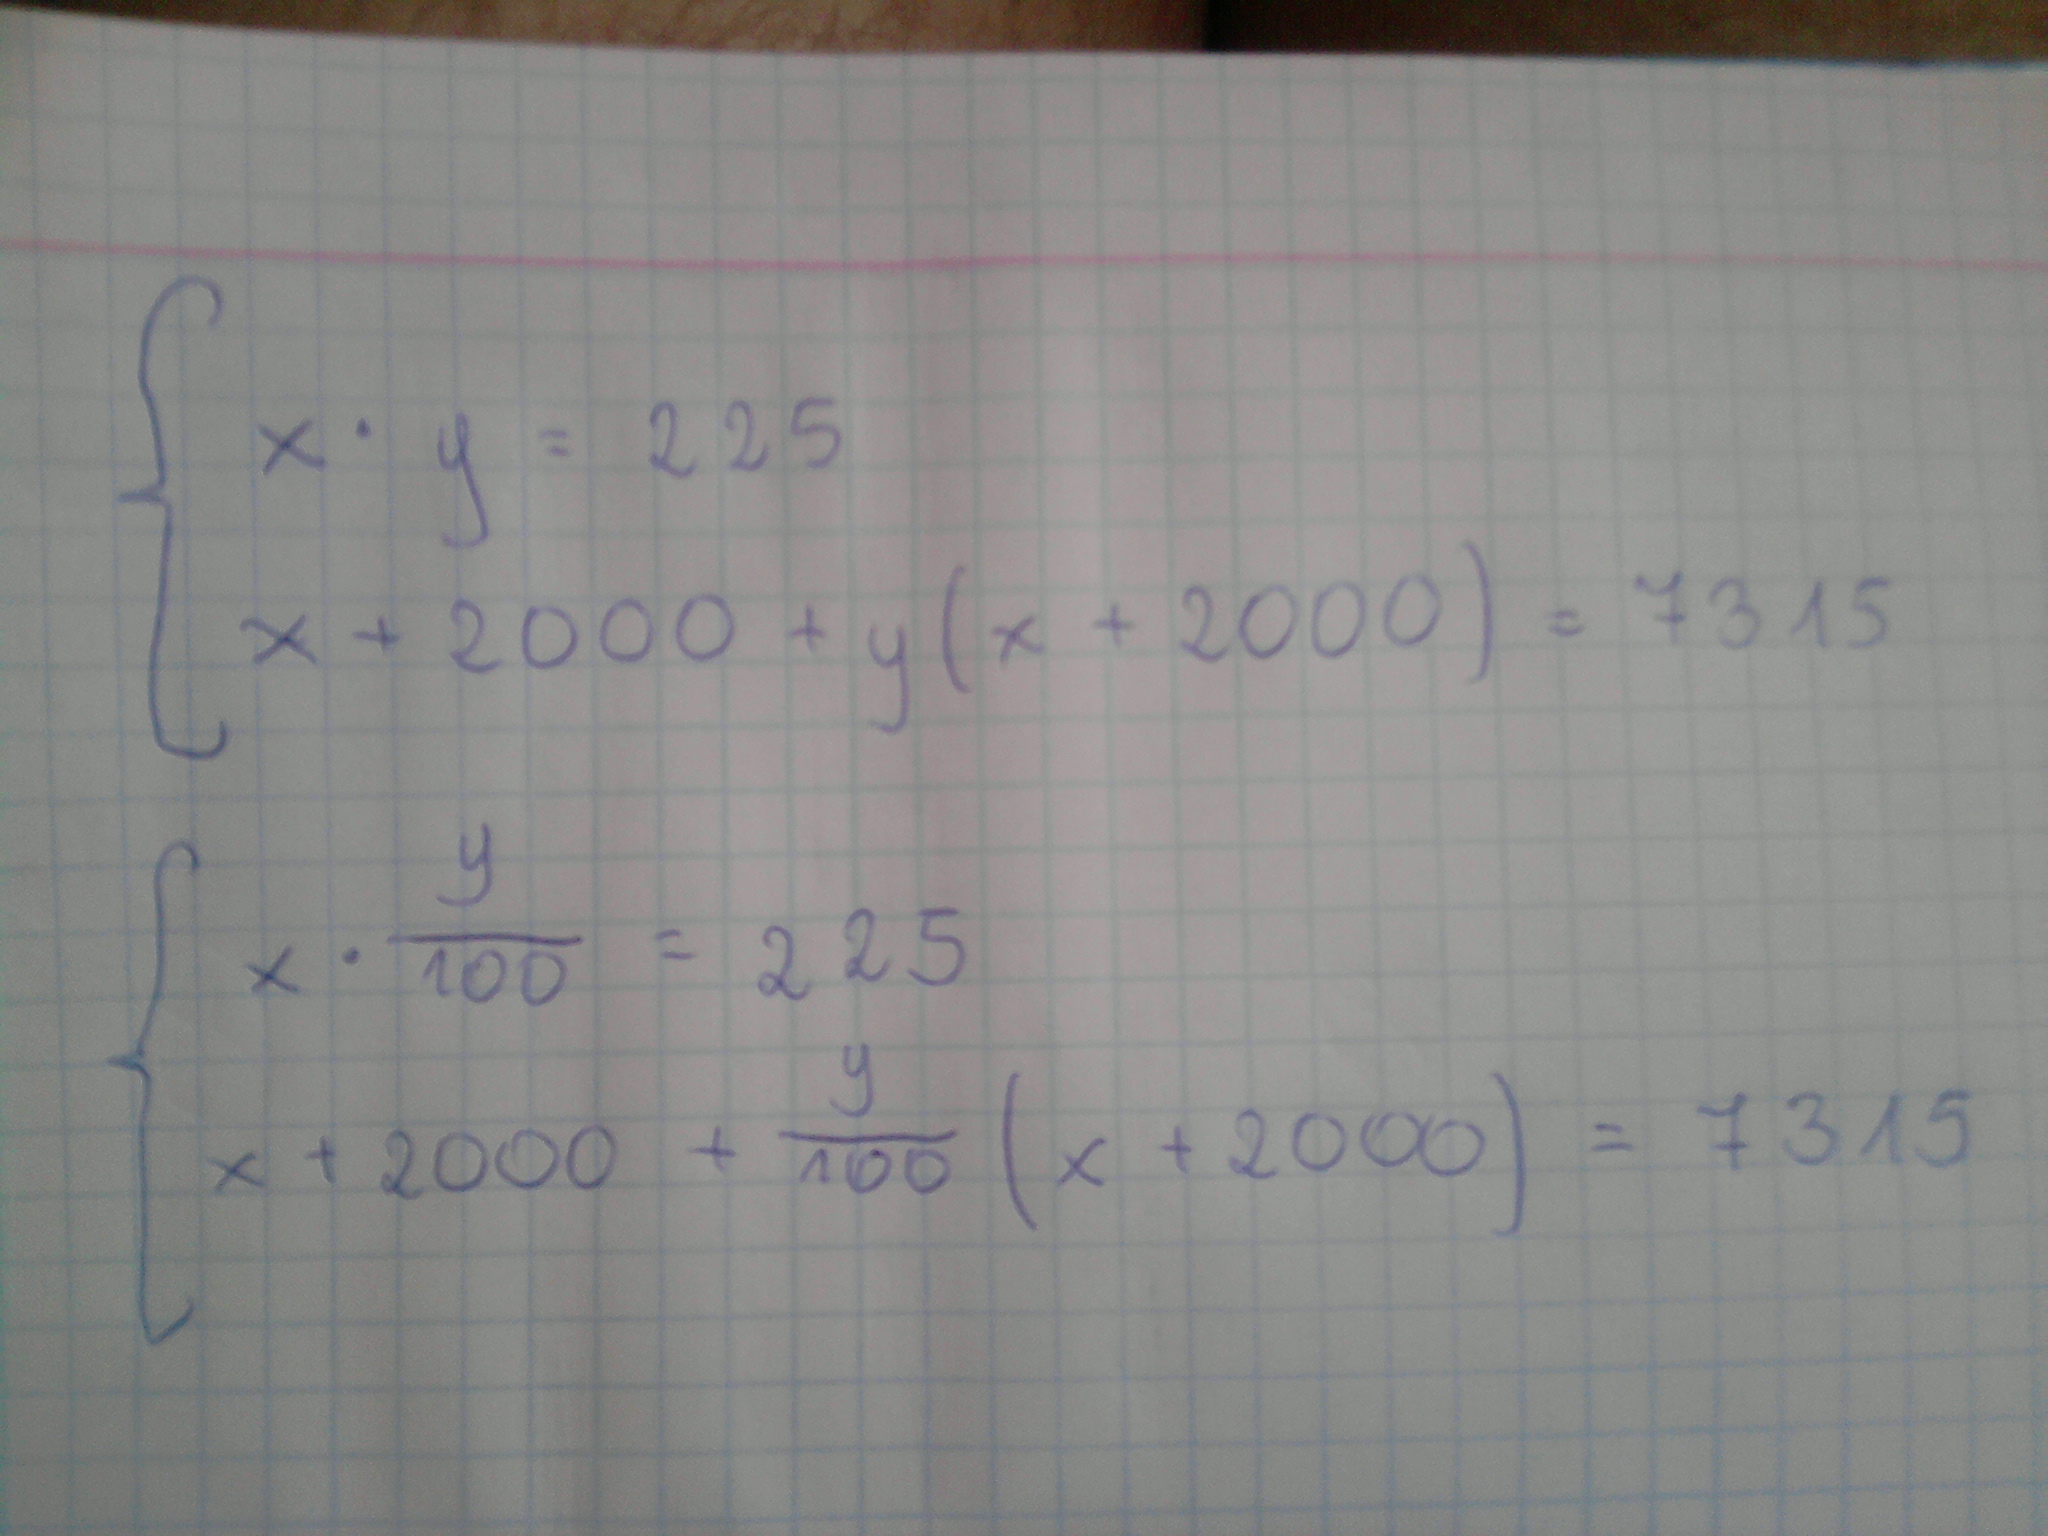 x · y = 225
x + 2000 + y(x + 2000) = 7315
x · y/100 = 225
x + 2000 + y/100 (x + 2000) = 7315